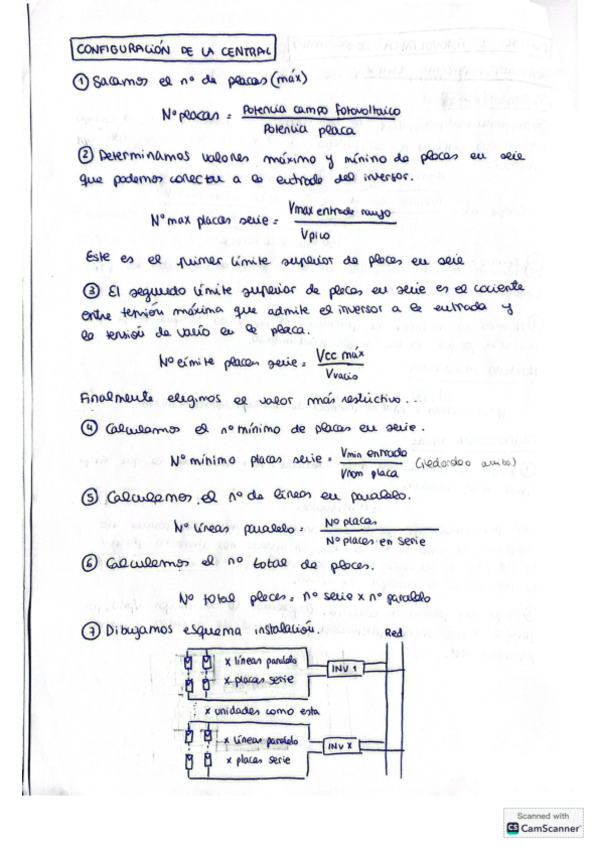 CONFIGURACIÓN DE LA CENTRAL
① Sacamos el nº de placas (máx)
Nº placas = Potencia campo fotovoltaico / Potencia placa
② Determinamos valores máximo y mínino de placas en serie
que podemos conectar a la entrada del inversor.
Nº max placas serie = Vmax entrada rango / Vpico
Este es el primer límite superior de placas en serie
③ El segundo límite superior de placas en serie es el cociente
entre tensión máxima que admite el inversor a la entrada y
la tensión de vacío en la placa.
Nº límite placas serie = Vcc máx / Vvacio
Finalmente elegimos el valor más restrictivo...
④ Calculamos el nº mínimo de placas en serie.
Nº mínimo placas serie = Vmin entrada / Vnom placa (redondeo arriba)
⑤ Calculamos el nº de líneas en paralelo.
Nº líneas paralelo = Nº placas / Nº placas en serie
⑥ Calculamos el nº total de placas.
Nº total placas = nº serie x nº paralelo
⑦ Dibujamos esquema instalación.
Red
x líneas paralelo
x placas serie
INV 1
x unidades como esta
x líneas paralelo
x placas serie
INV X
Scanned with
CS CamScanner